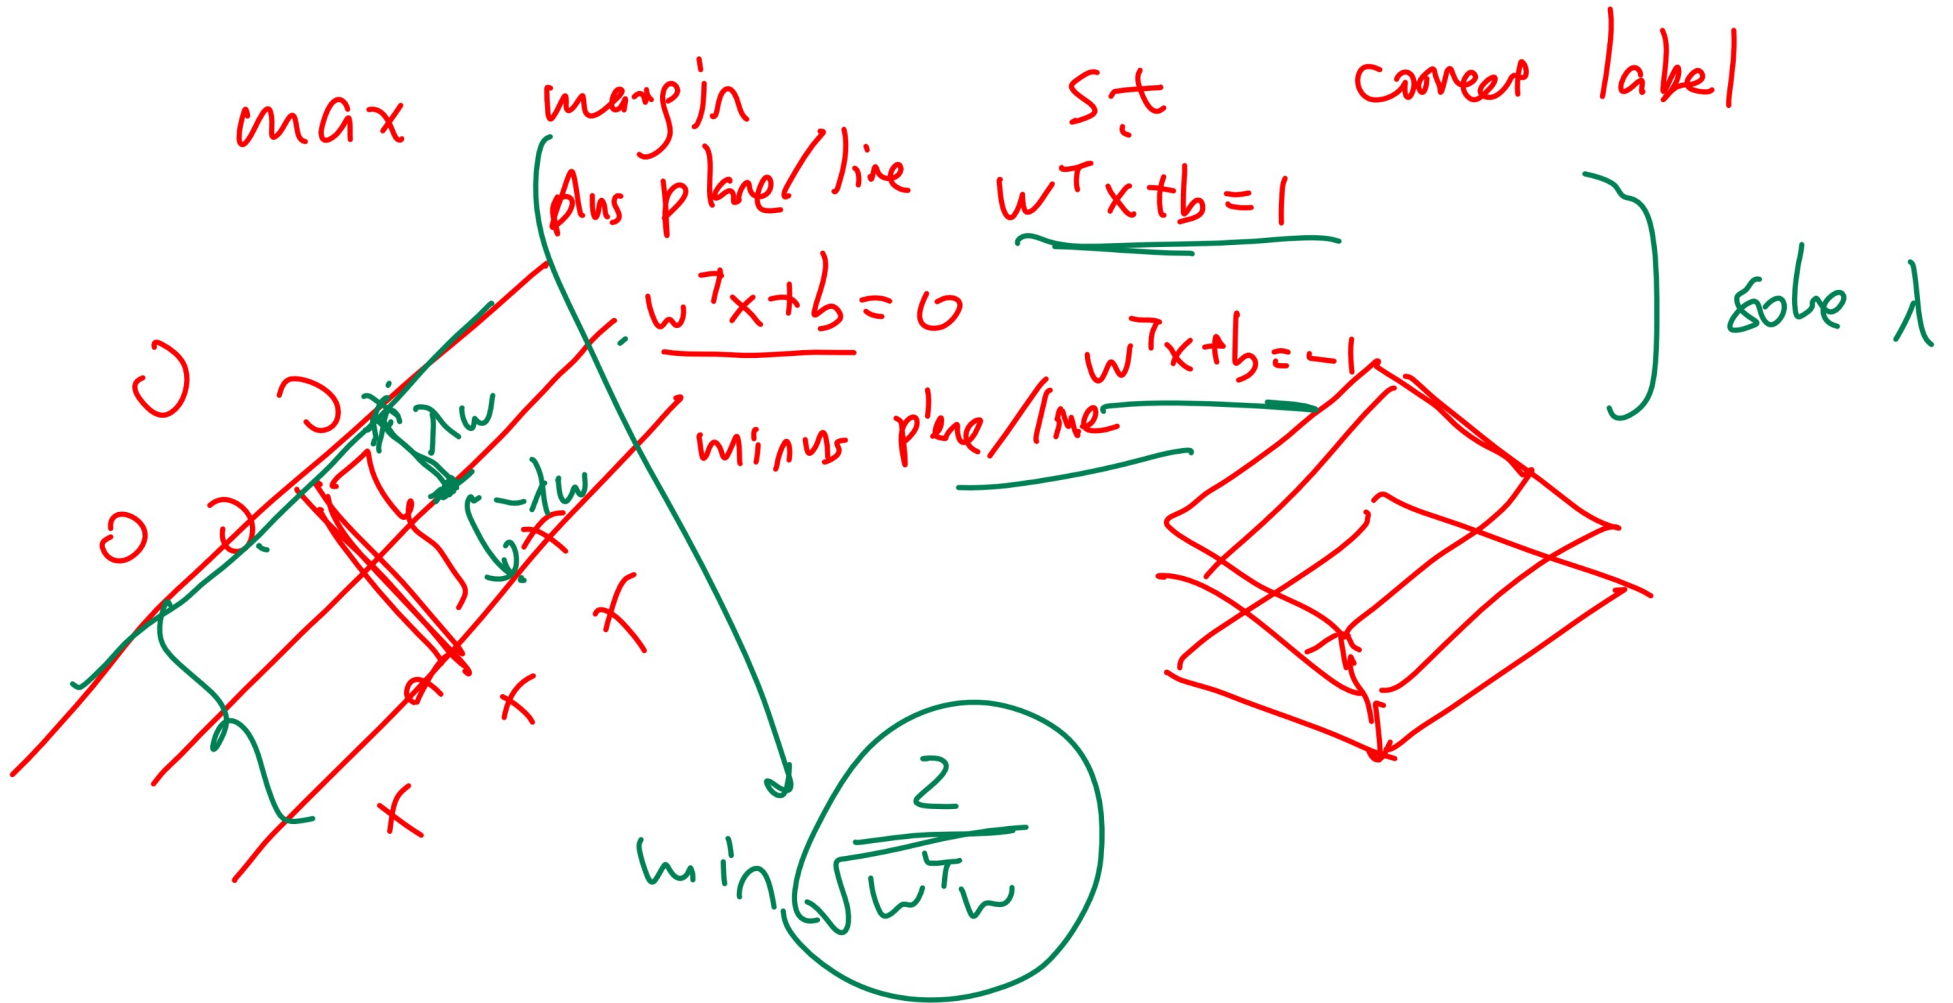 max margin s.t correct label
plus plane/line w^T x+b=1
w^T x+b=0
w^T x+b=-1
minus plane/line
solve λ
λw
-λw
min 2/√(w^T w)